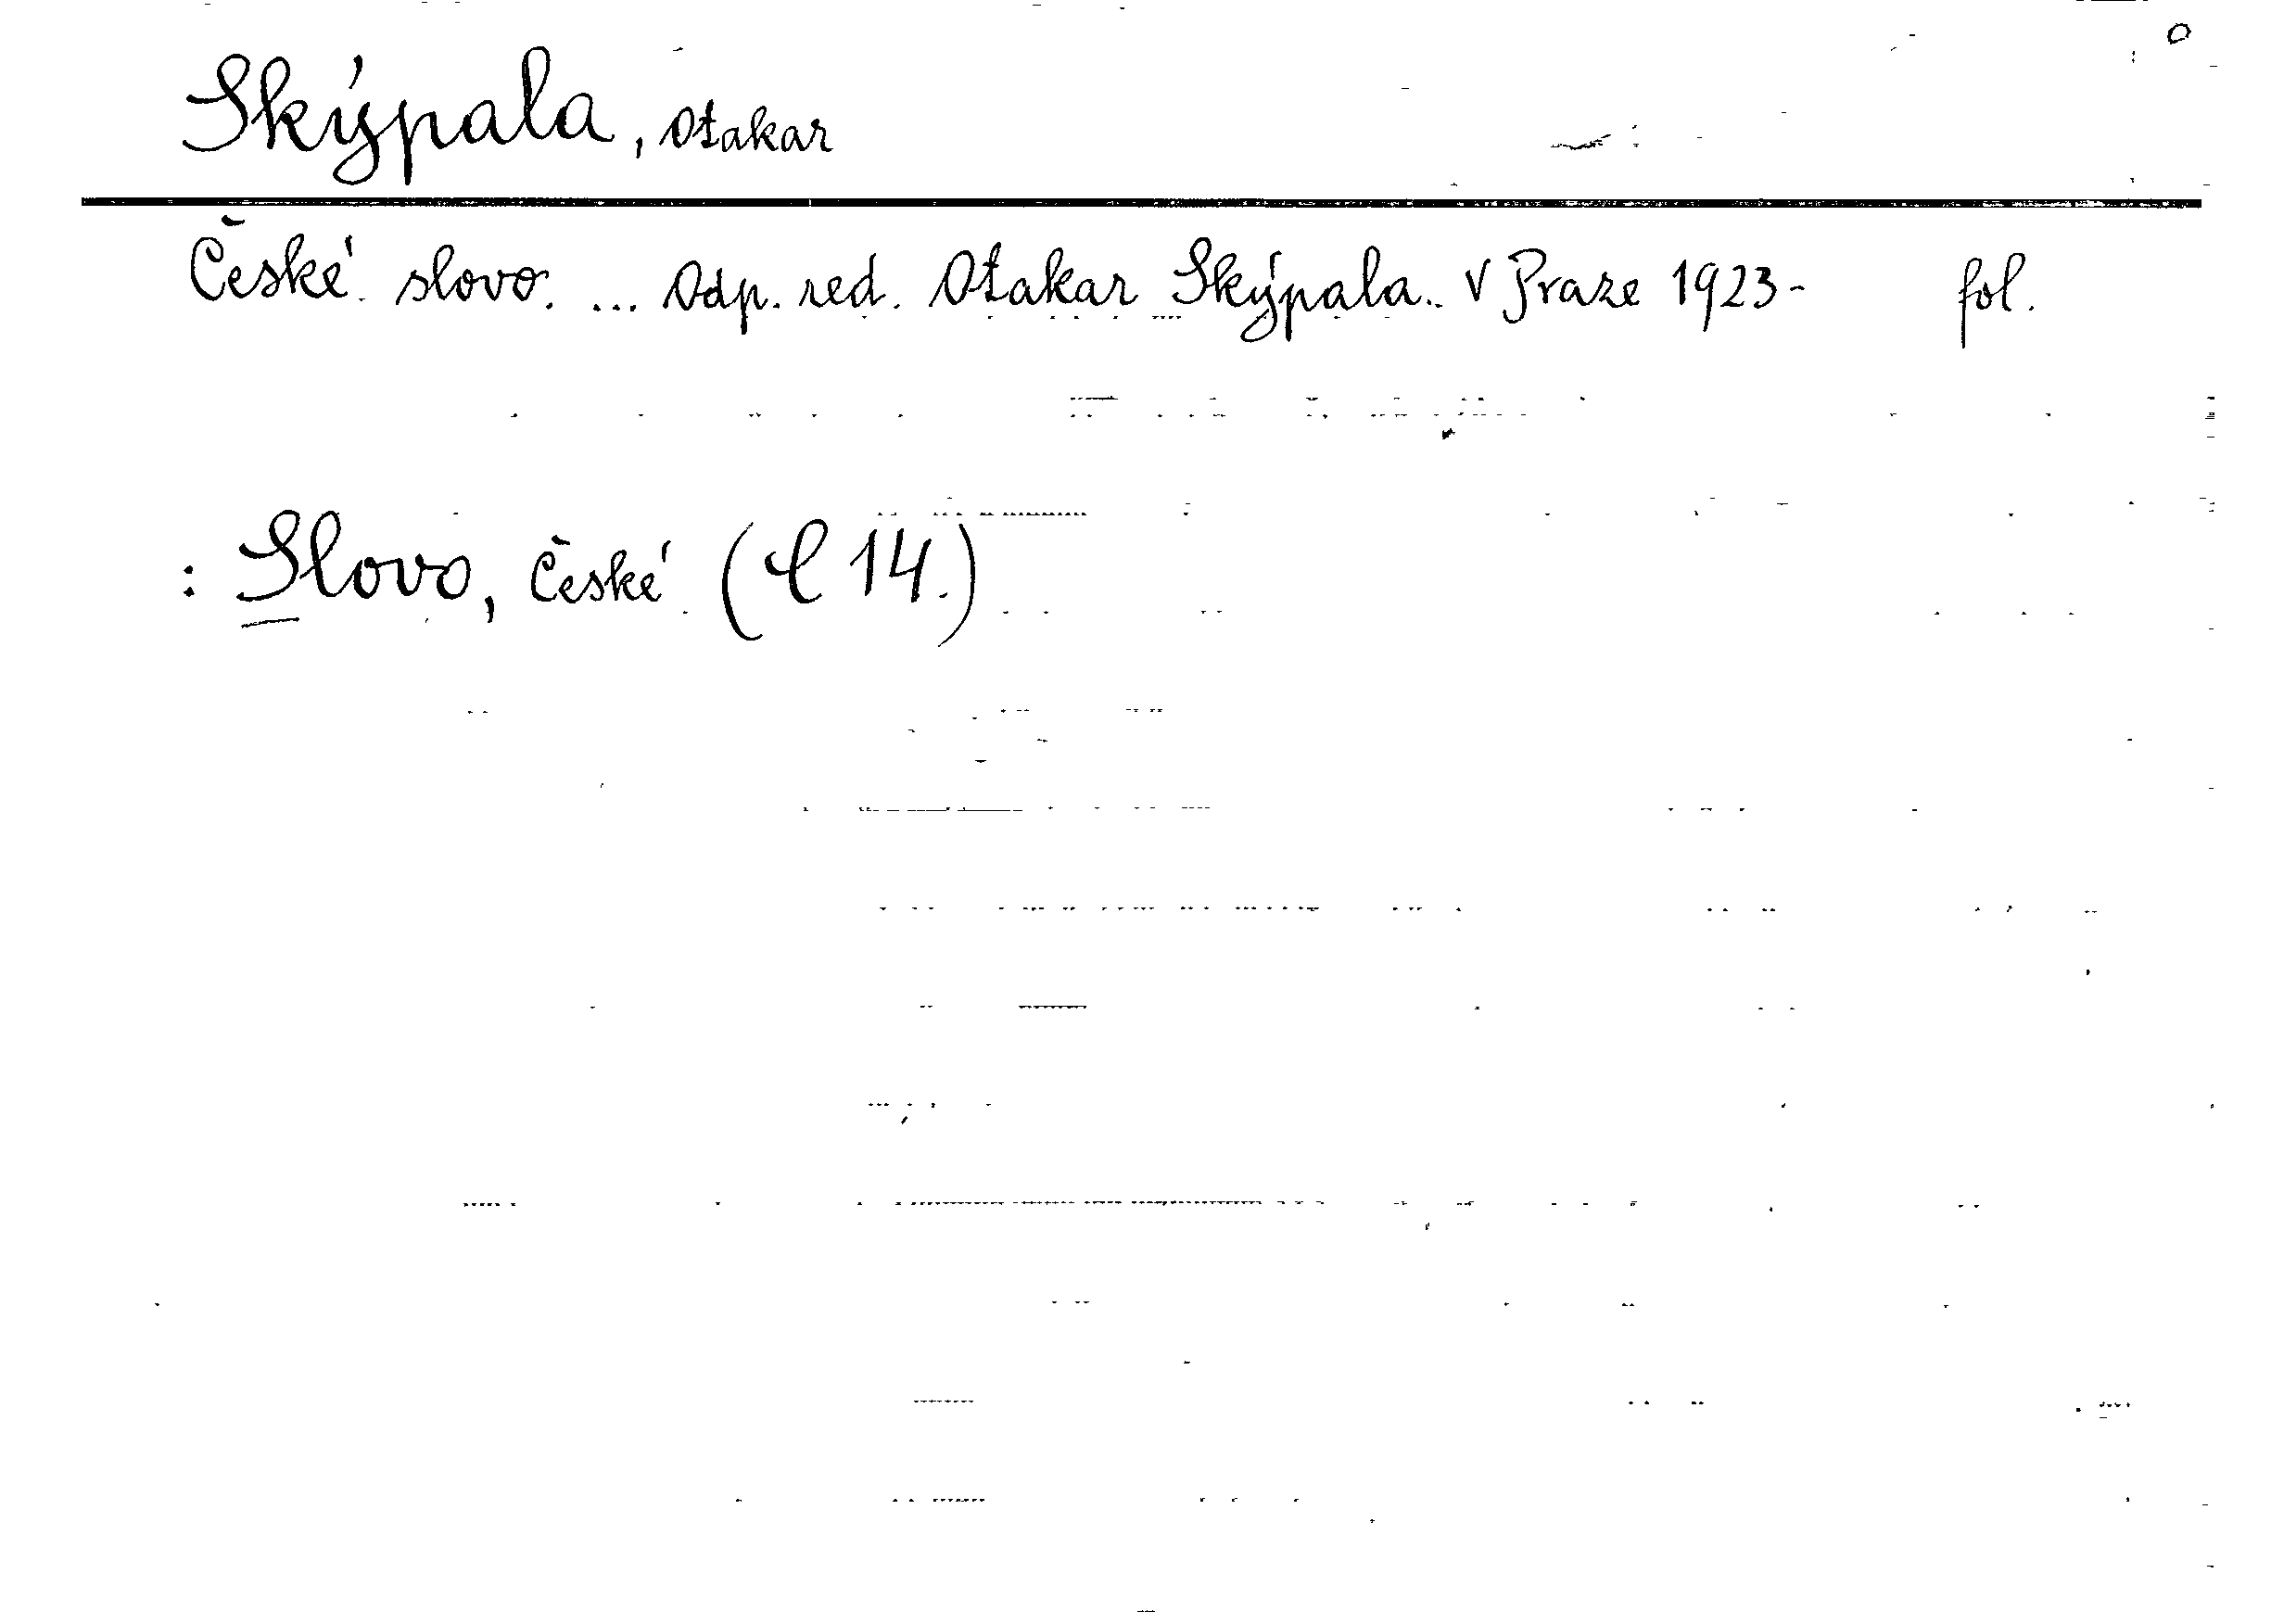 Skýpala, Otakar
České slovo. ... Odp. red. Otakar Skýpala. V Praze 1923- fol.
: Slovo, České (C 14.)